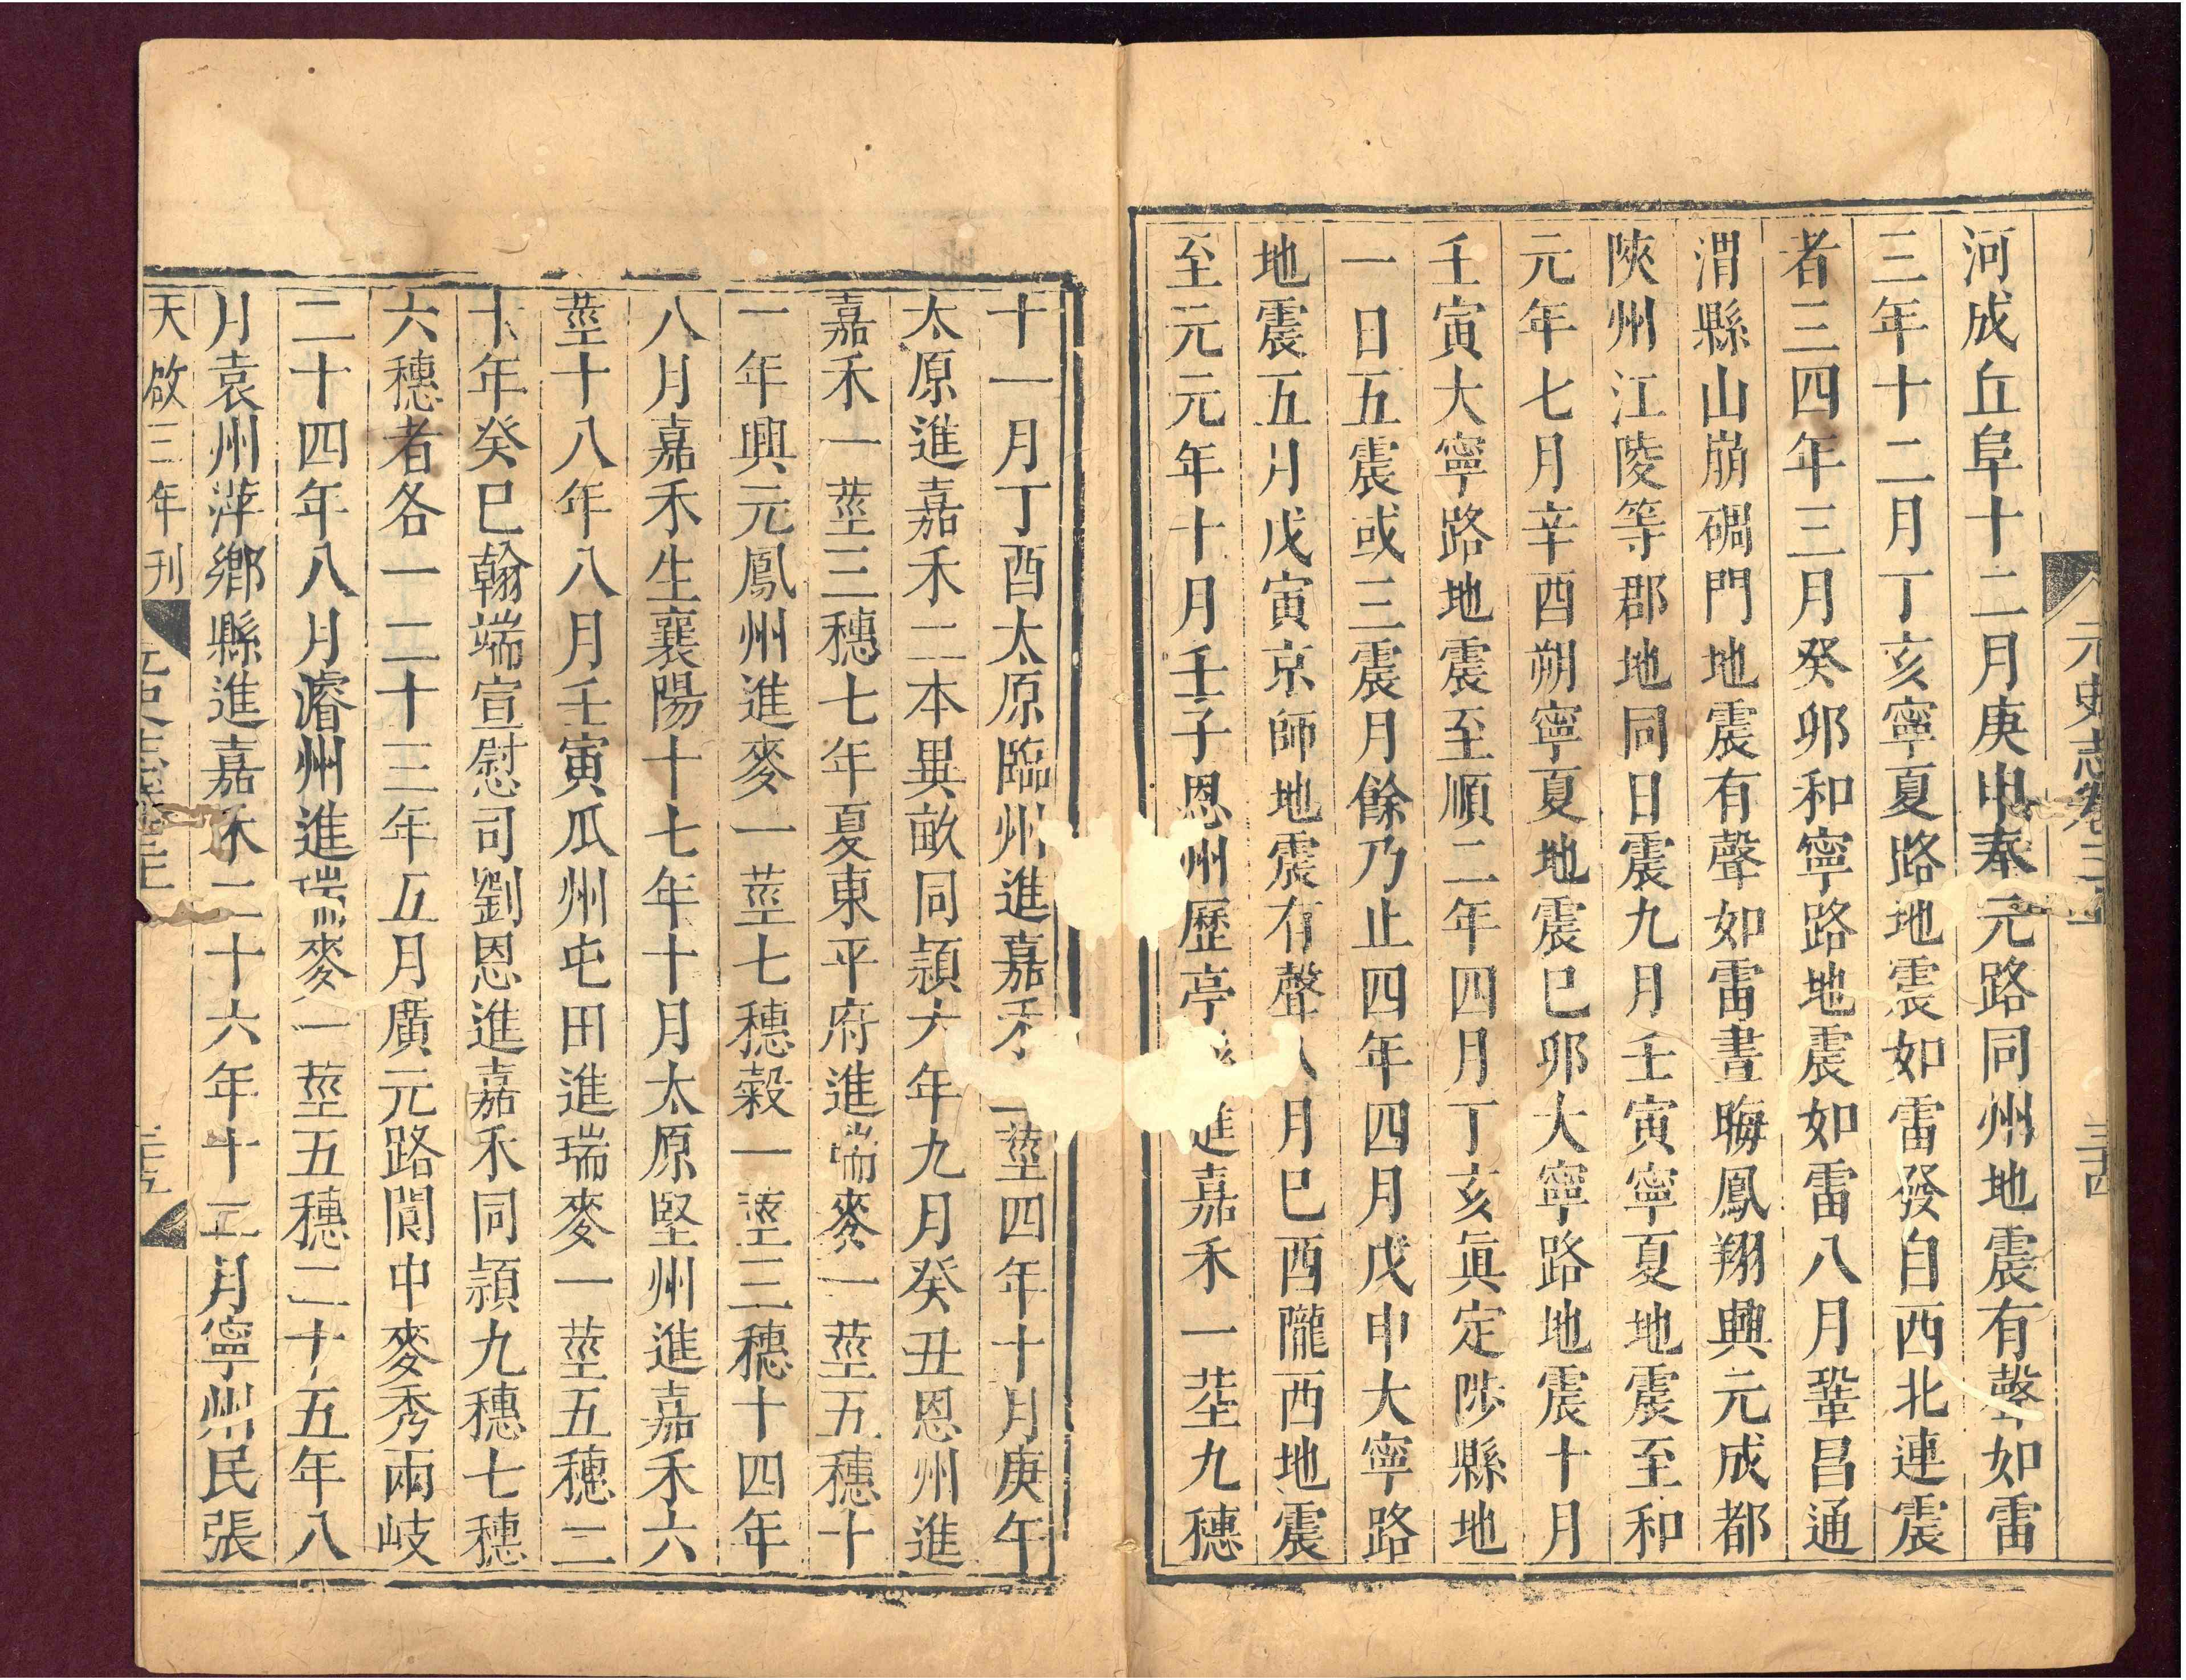 元史志卷三下
三十四
河成丘阜十二月庚申奉元路同州地震有聲如雷
三年十二月丁亥寧夏路地震如雷發自西北連震
者三四年三月癸卯和寧路地震如雷八月鞏昌通
渭縣山崩碉門地震有聲如雷晝晦鳳翔興元成都
陝州江陵等郡地同日震九月壬寅寧夏地震至和
元年七月辛酉朔寧夏地震巳卯大寧路地震十月
壬寅大寧路地震至順二年四月丁亥眞定陟縣地
一日五震或三震月餘乃止四年四月戊申大寧路
地震五月戊寅京師地震有聲八月巳酉隴西地震
至元元年十月壬子恩州歷亭進嘉禾一莖九穗
十一月丁酉太原臨州進嘉禾二莖四年十月庚午
太原進嘉禾二本異畝同頴六年九月癸丑恩州進
嘉禾一莖三穗七年夏東平府進瑞麥一莖五穗十
一年興元鳳州進麥一莖七穗穀一莖三穗十四年
八月嘉禾生襄陽十七年十月太原堅州進嘉禾六
莖十八年八月壬寅瓜州屯田進瑞麥一莖五穗二
十年癸巳翰端宣慰司劉恩進嘉禾同頴九穗七穗
六穗者各一二十三年五月廣元路閬中麥秀兩岐
二十四年八月濬州進瑞麥一莖五穗二十五年八
月袁州萍鄉縣進嘉禾二十六年十二月寧州民張
天啟三年刊
元史志卷三下
三十五